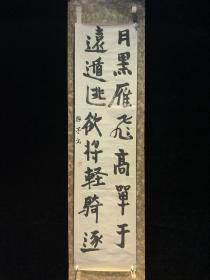 月黑雁飛高單于
遠遁逃欲将軽騎逐